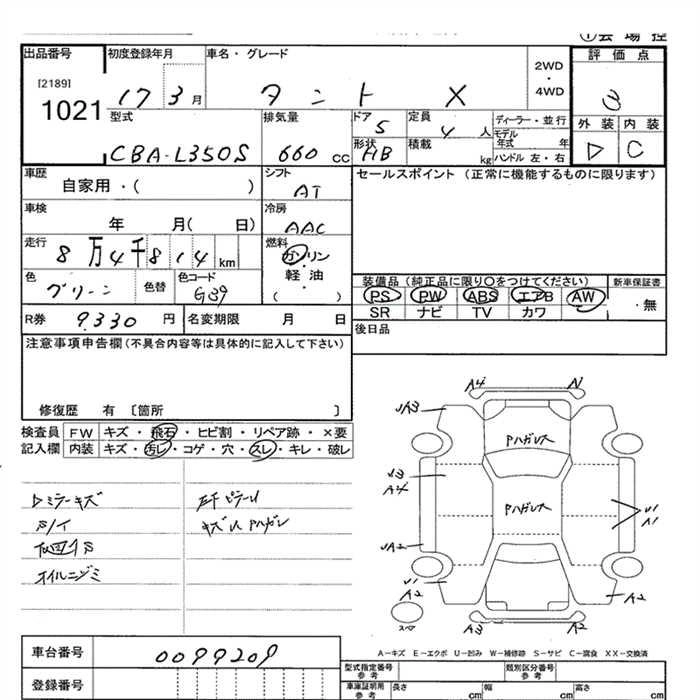 出品番号
[2189]
1021
初度登録年月
17 3月
車名・グレード
タント X
2WD
・
4WD
評価点
外装 内装
D C
型式
CBA-L350S
排気量
660 CC
ドア
5
形状
HB
定員
4 人
積載
kg
ディーラー・並行
モデル
年式 年
ハンドル 左・右
車歴
自家用・( )
シフト
AT
セールスポイント (正常に機能するものに限ります)
車検
年 月( 日)
冷房
AAC
走行
8万4千814 km
燃料
ガソリン
軽油
( )
色
グリーン
色替
色コード
G39
装備品 (純正品に限り〇をつけてください)
PS PW ABS エアB AW
SR ナビ TV カワ
新車保証書
・無
R券
9,330 円
名変期限 月 日
後日品
注意事項申告欄(不具合内容等は具体的に記入して下さい)
修復歴 有 〔箇所 〕
検査員
記入欄
FW キズ・飛石・ヒビ割・リペア跡・×要
内装 キズ・汚レ・コゲ・穴・スレ・キレ・破レ
Dミラーキズ
オイルニジミ
キズU Pハガレ
A4
UA3
Pハガレ
U3
A4
Pハガレ
U1
A1
UA2
U1
A2
A2
A3
A2
スペ
A-キズ E-エクボ U-凹み W-補修跡 S-サビ C-腐食 XX-交換済
車台番号
0099209
登録番号
型式指定番号
参考
類別区分番号
参考
車庫証明用
参考
長さ cm
幅 cm
高さ cm